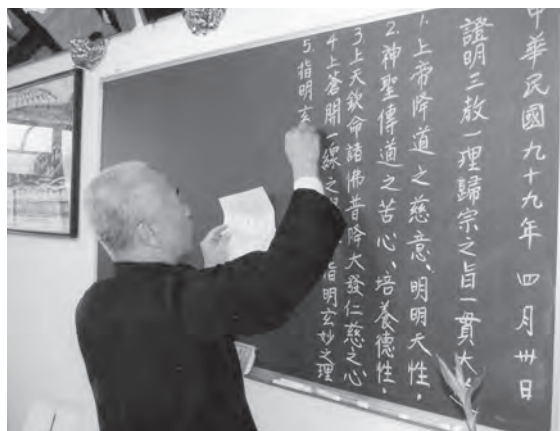 中華民國九十九年 四月卅日
證明三教一理歸宗之旨一貫大
1. 上帝降道之慈意、明明天性，
2. 神聖傳道之苦心、培養德性，
3 上天欽命諸佛昔降大發仁慈之心
4 上蒼開一線之 指明玄妙之理
5. 指明玄